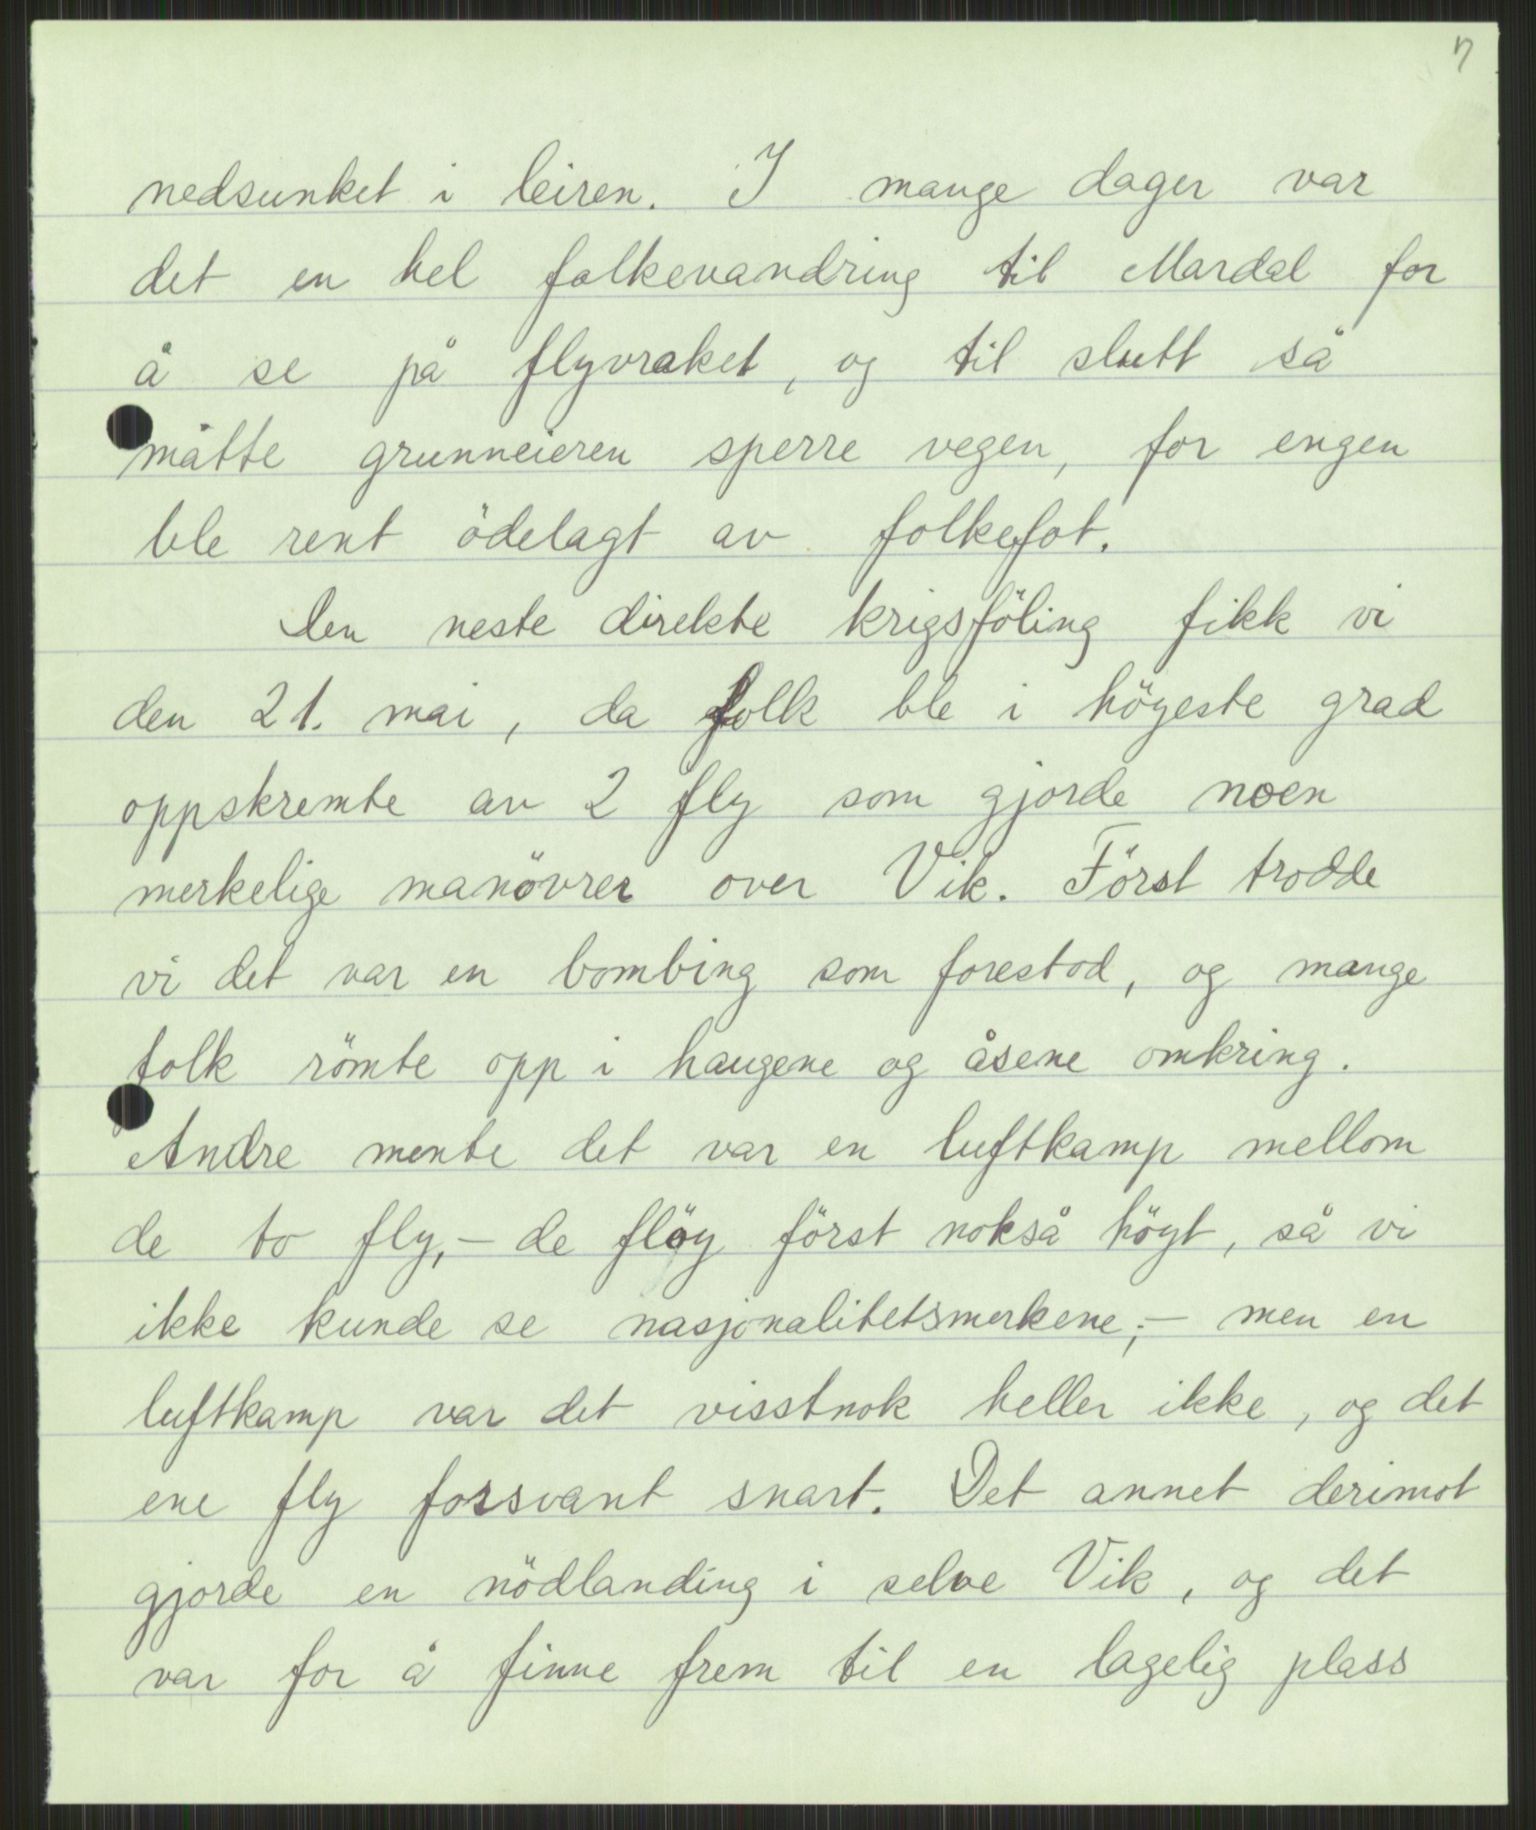 7
nedsunket i leiren. I mange dager var
det en hel folkevandring til Mardal for
å se på flyvraket, og til slutt så
måtte grunneieren sperre vegen, for engen
ble rent ödelagt av folkefot.
Den neste direkte krigsföling fikk vi
den 21. mai, da folk ble i högeste grad
oppskremte av 2 fly som gjorde noen
merkelige manövrer over Vik. Först trodde
vi det var en bombing som forestod, og mange
folk römte opp i haugene og åsene omkring.
Andre mente det var en luftkamp mellom
de to fly,- de flöy först nokså höyt, så vi
ikke kunde se nasjonalitetsmerkene;- men en
luftkamp var det visstnok heller ikke, og det
ene fly forsvant snart. Det annet derimot
gjorde en nödlanding i selve Vik, og det
var for å finne frem til en lagelig plass